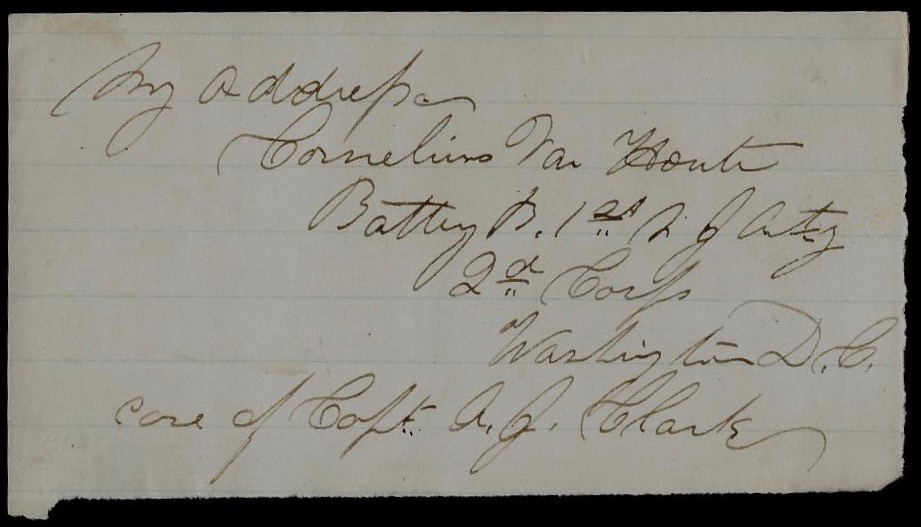 My Address
Cornelius Van Houte
Battry B. 1st N J Arty
2d Corps
Washington D.C.
care of Capt. A. J. Clark